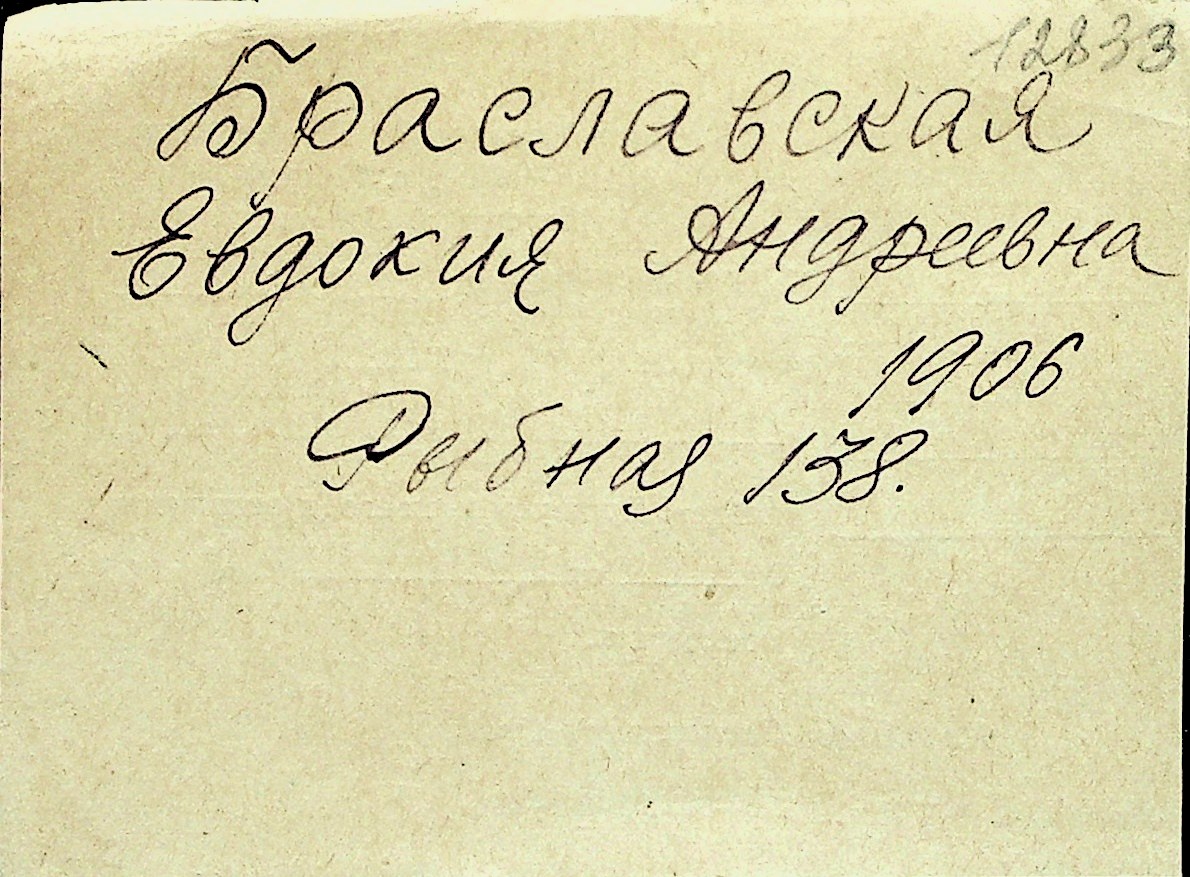 12833
Браславская
Евдокия Андреевна
1906
Рыбная 138.